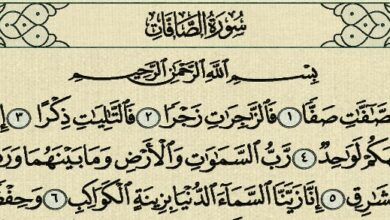 سُورَةُ الصَّافَّاتِ
بِسْمِ اللَّهِ الرَّحْمَٰنِ الرَّحِيمِ
صَّـٰٓفَّـٰتِ صَفًّا ١ فَالزَّٰجِرَٰتِ زَجْرًا ٢ فَالتَّـٰلِيَـٰتِ ذِكْرًا ٣ إِ
كُمْ لَوَٰحِدٌ ٤ رَّبُّ السَّمَـٰوَٰتِ وَالْأَرْضِ وَمَا بَيْنَهُمَا وَرَ
شَـٰرِقِ ٥ إِنَّا زَيَّنَّا السَّمَآءَ الدُّنْيَا بِزِينَةٍ الْكَوَاكِبِ ٦ وَحِفْظً